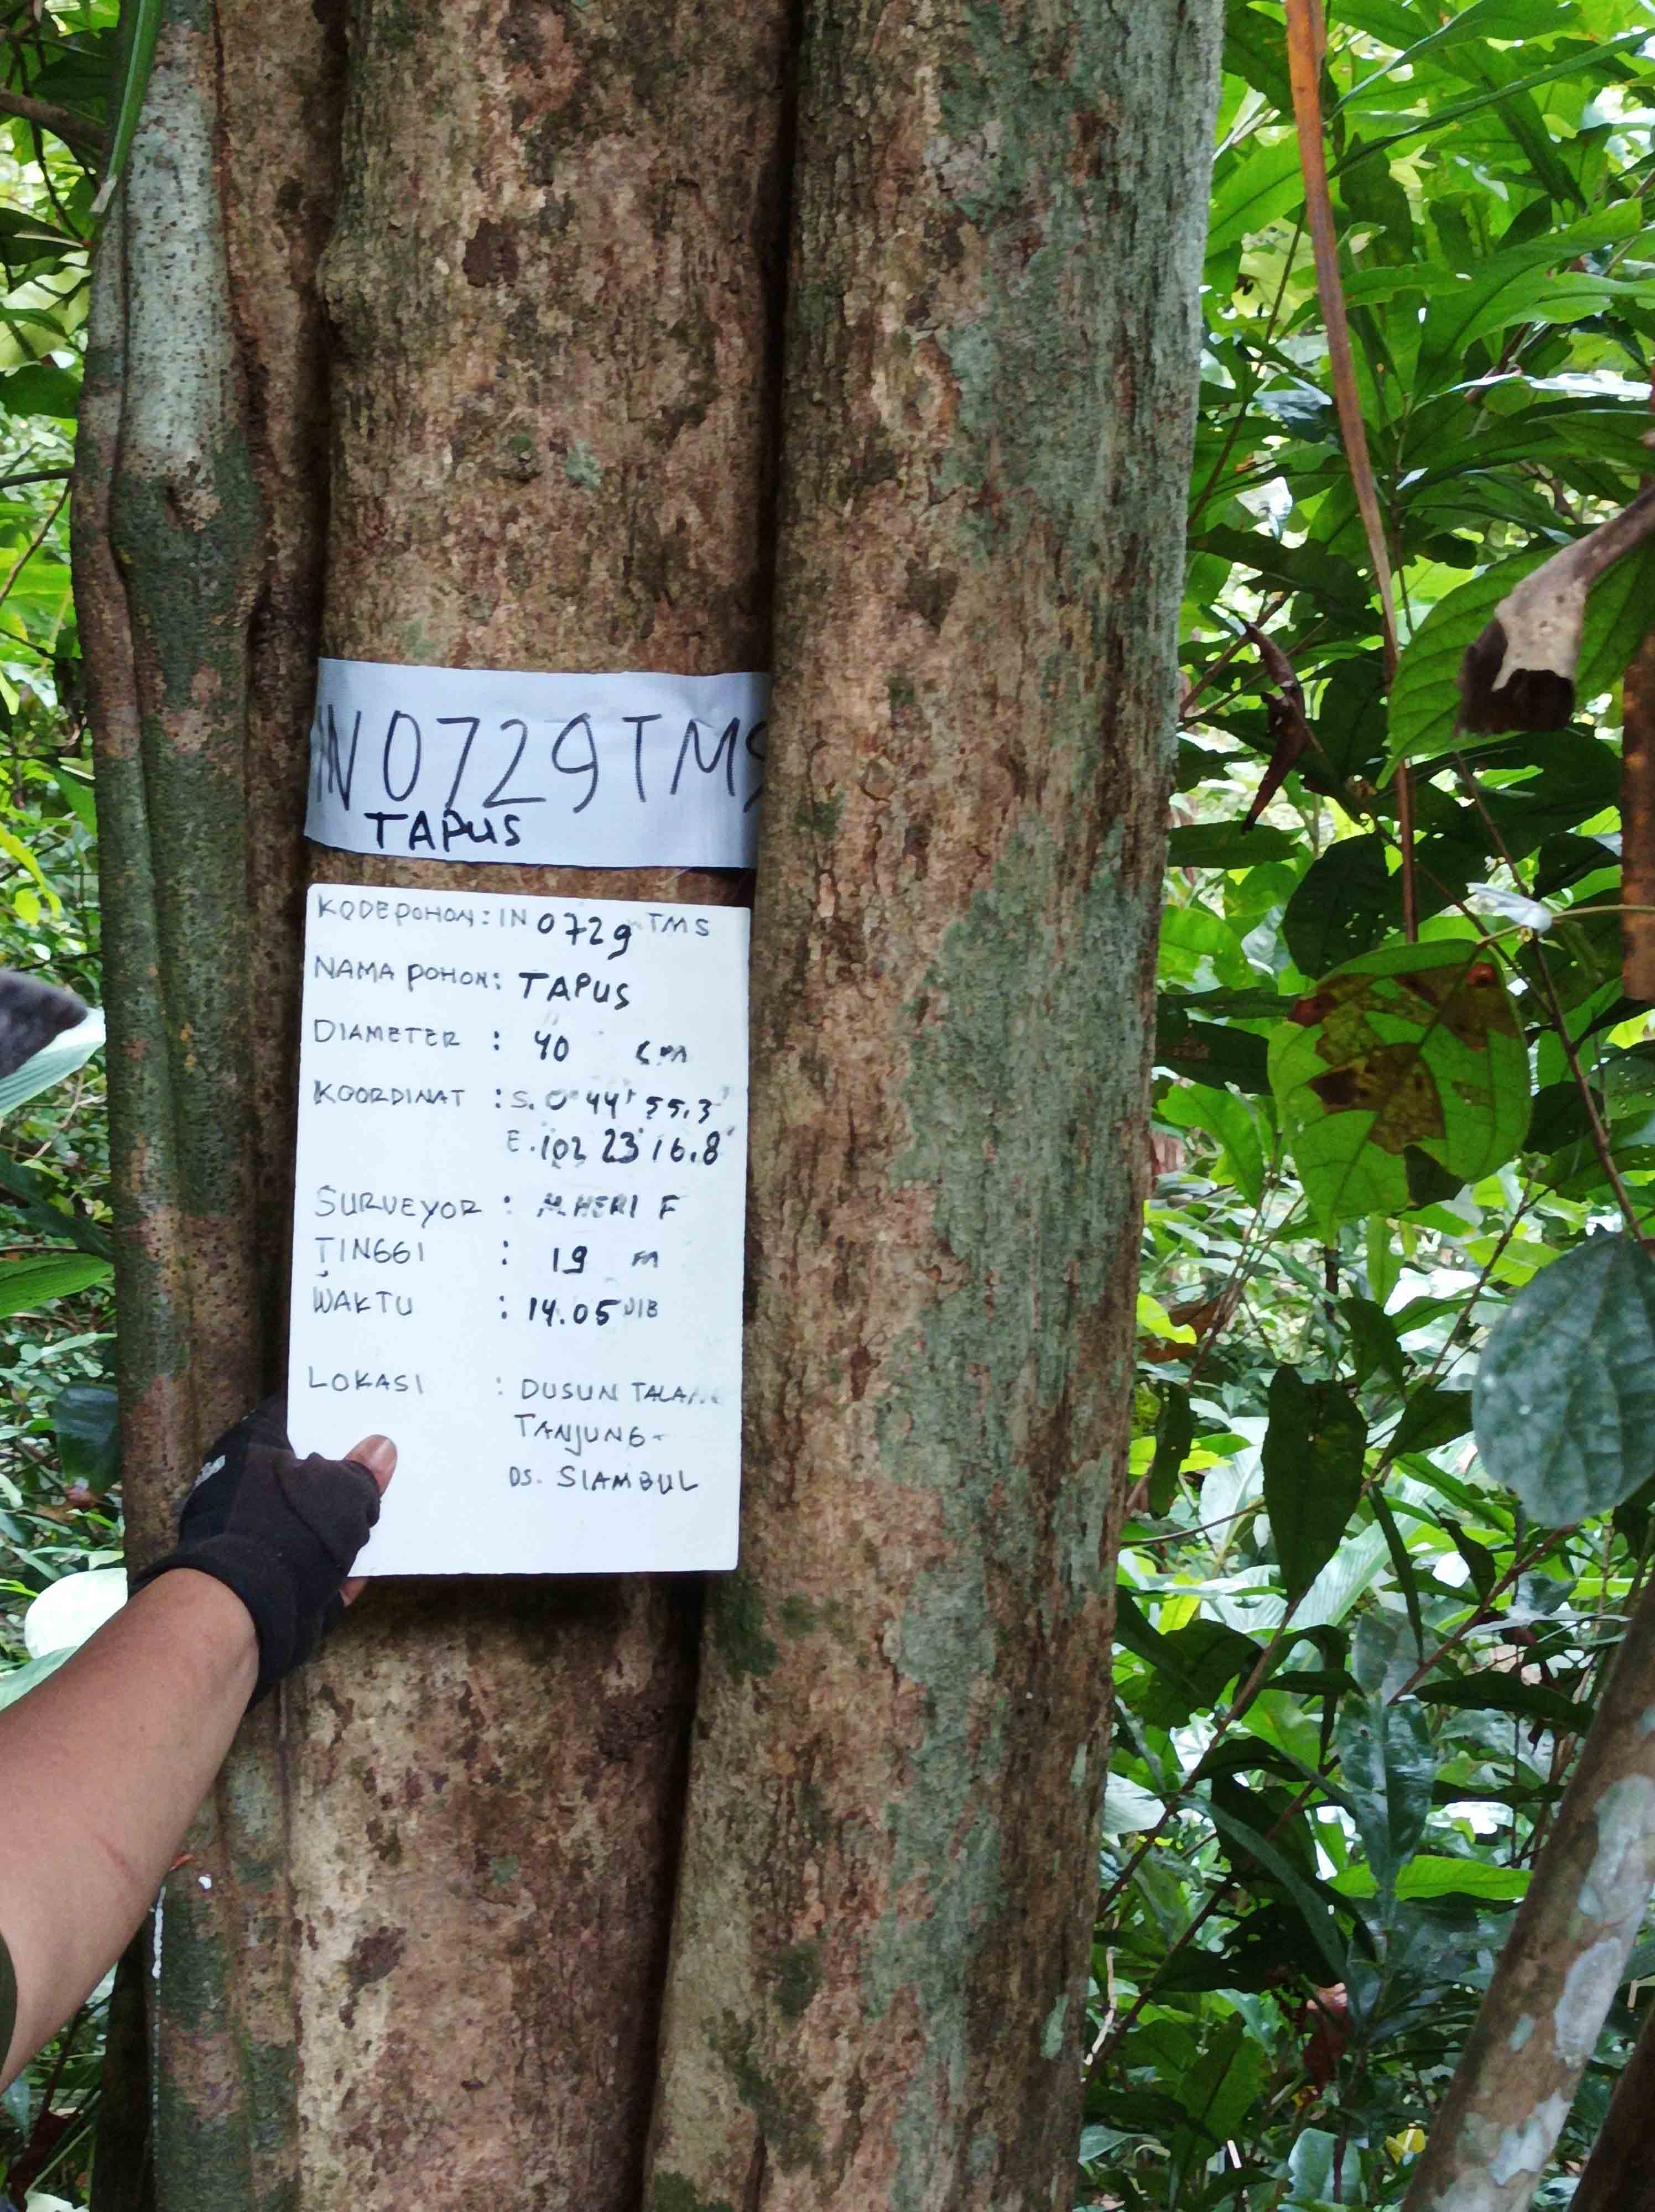 IN0729TMS
TAPUS
KODE POHON : IN 0729 TMS
NAMA POHON : TAPUS
DIAMETER : 40 cm
KOORDINAT : S. 0° 44' 55,3"
E. 102 23' 16.8"
SURVEYOR : M. HERI F
TINGGI : 19 m
WAKTU : 14.05 WIB
LOKASI : DUSUN TALANG
TANJUNG-
DS. SIAMBUL